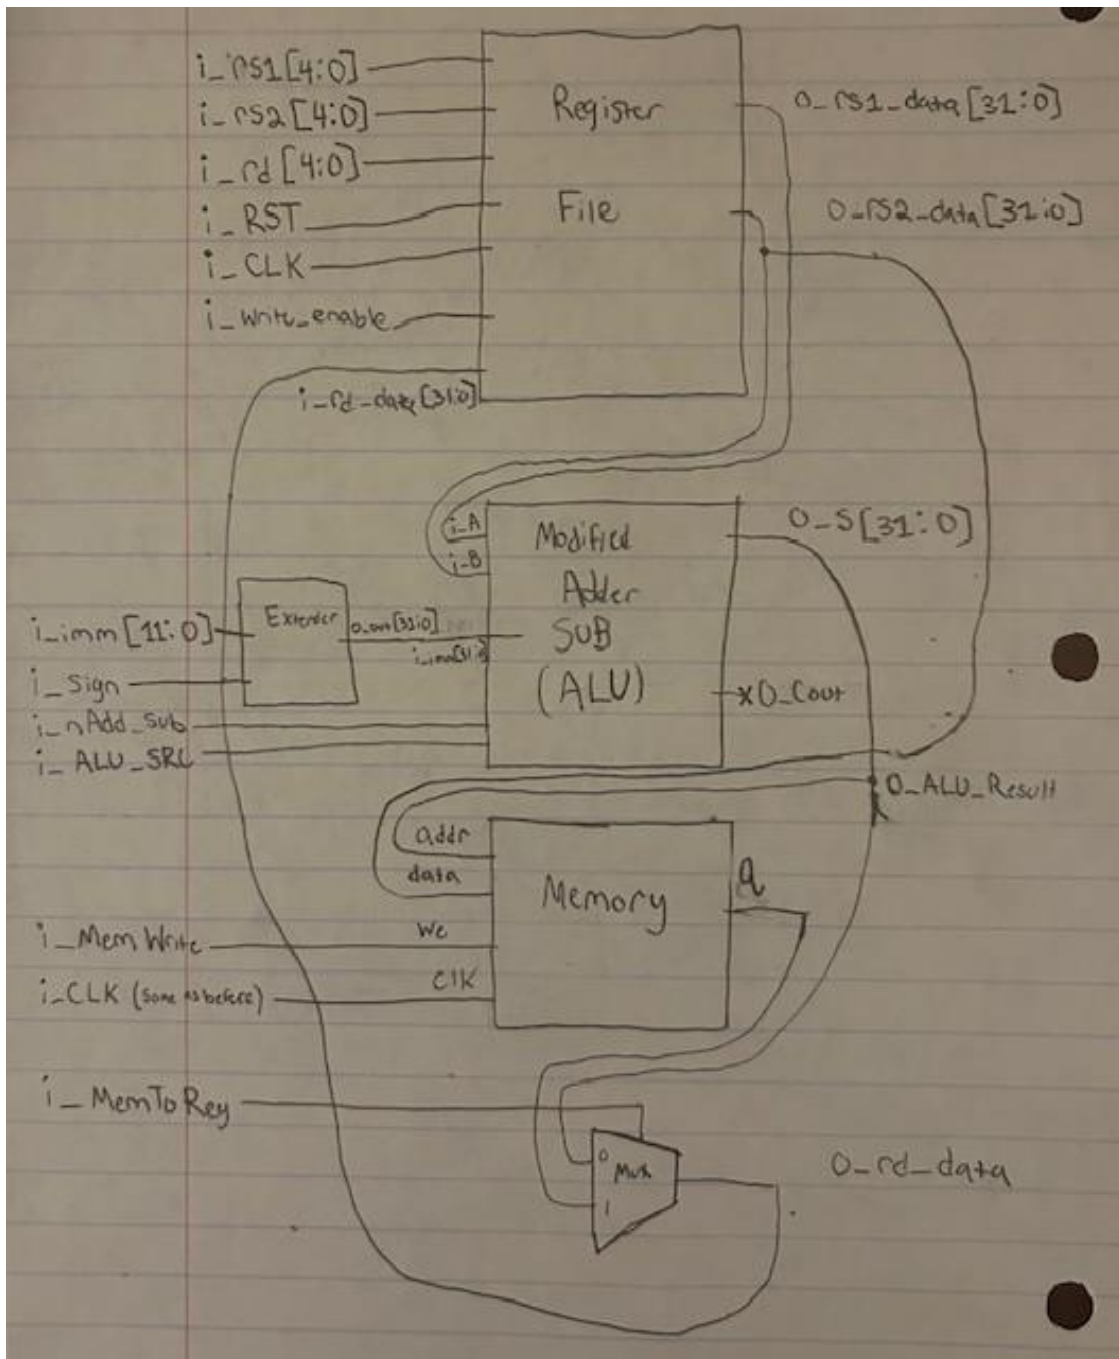 i_rs1[4:0]
i_rs2[4:0]
i_rd[4:0]
i_RST
i_CLK
i_write_enable
i_rd_data[31:0]
Register
File
o_rs1_data[31:0]
o_rs2_data[31:0]
i_A
i_B
Modified
Adder
SUB
(ALU)
O_S[31:0]
xO_Cout
Extender
o_out[31:0]
i_imm[31:0]
i_imm[11:0]
i_Sign
i_nAdd_Sub
i_ALU_SRC
O_ALU_Result
addr
data
we
Clk
Memory
Q
i_MemWrite
i_CLK (Same as before)
i_MemToReg
0
Mux
1
O_rd_data